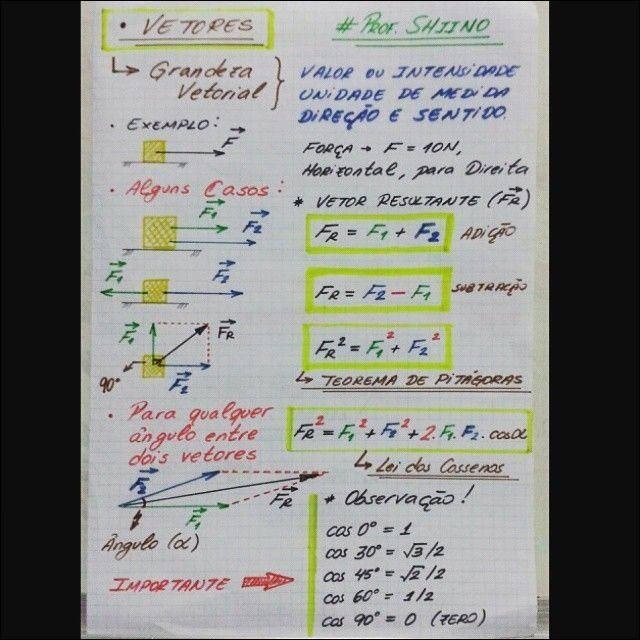 • VETORES
# PROF. SHIINO
↳ Grandeza Vetorial
VALOR OU INTENSIDADE
UNIDADE DE MEDIDA
DIREÇÃO E SENTIDO.
• EXEMPLO:
F
FORÇA → F = 10N,
Horizontal, para Direita
• Alguns Casos:
F1
F2
* VETOR RESULTANTE (FR)
FR = F1 + F2 ADIÇÃO
F1
F2
FR = F2 - F1 SUBTRAÇÃO
F1
FR
90°
F2
FR² = F1² + F2²
↳ TEOREMA DE PITÁGORAS
• Para qualquer
ângulo entre
dois vetores
FR² = F1² + F2² + 2.F1.F2.cosα
↳ Lei dos Cossenos
F2
F1
FR
Ângulo (α)
IMPORTANTE
* Observação!
cos 0° = 1
cos 30° = √3/2
cos 45° = √2/2
cos 60° = 1/2
cos 90° = 0 (ZERO)